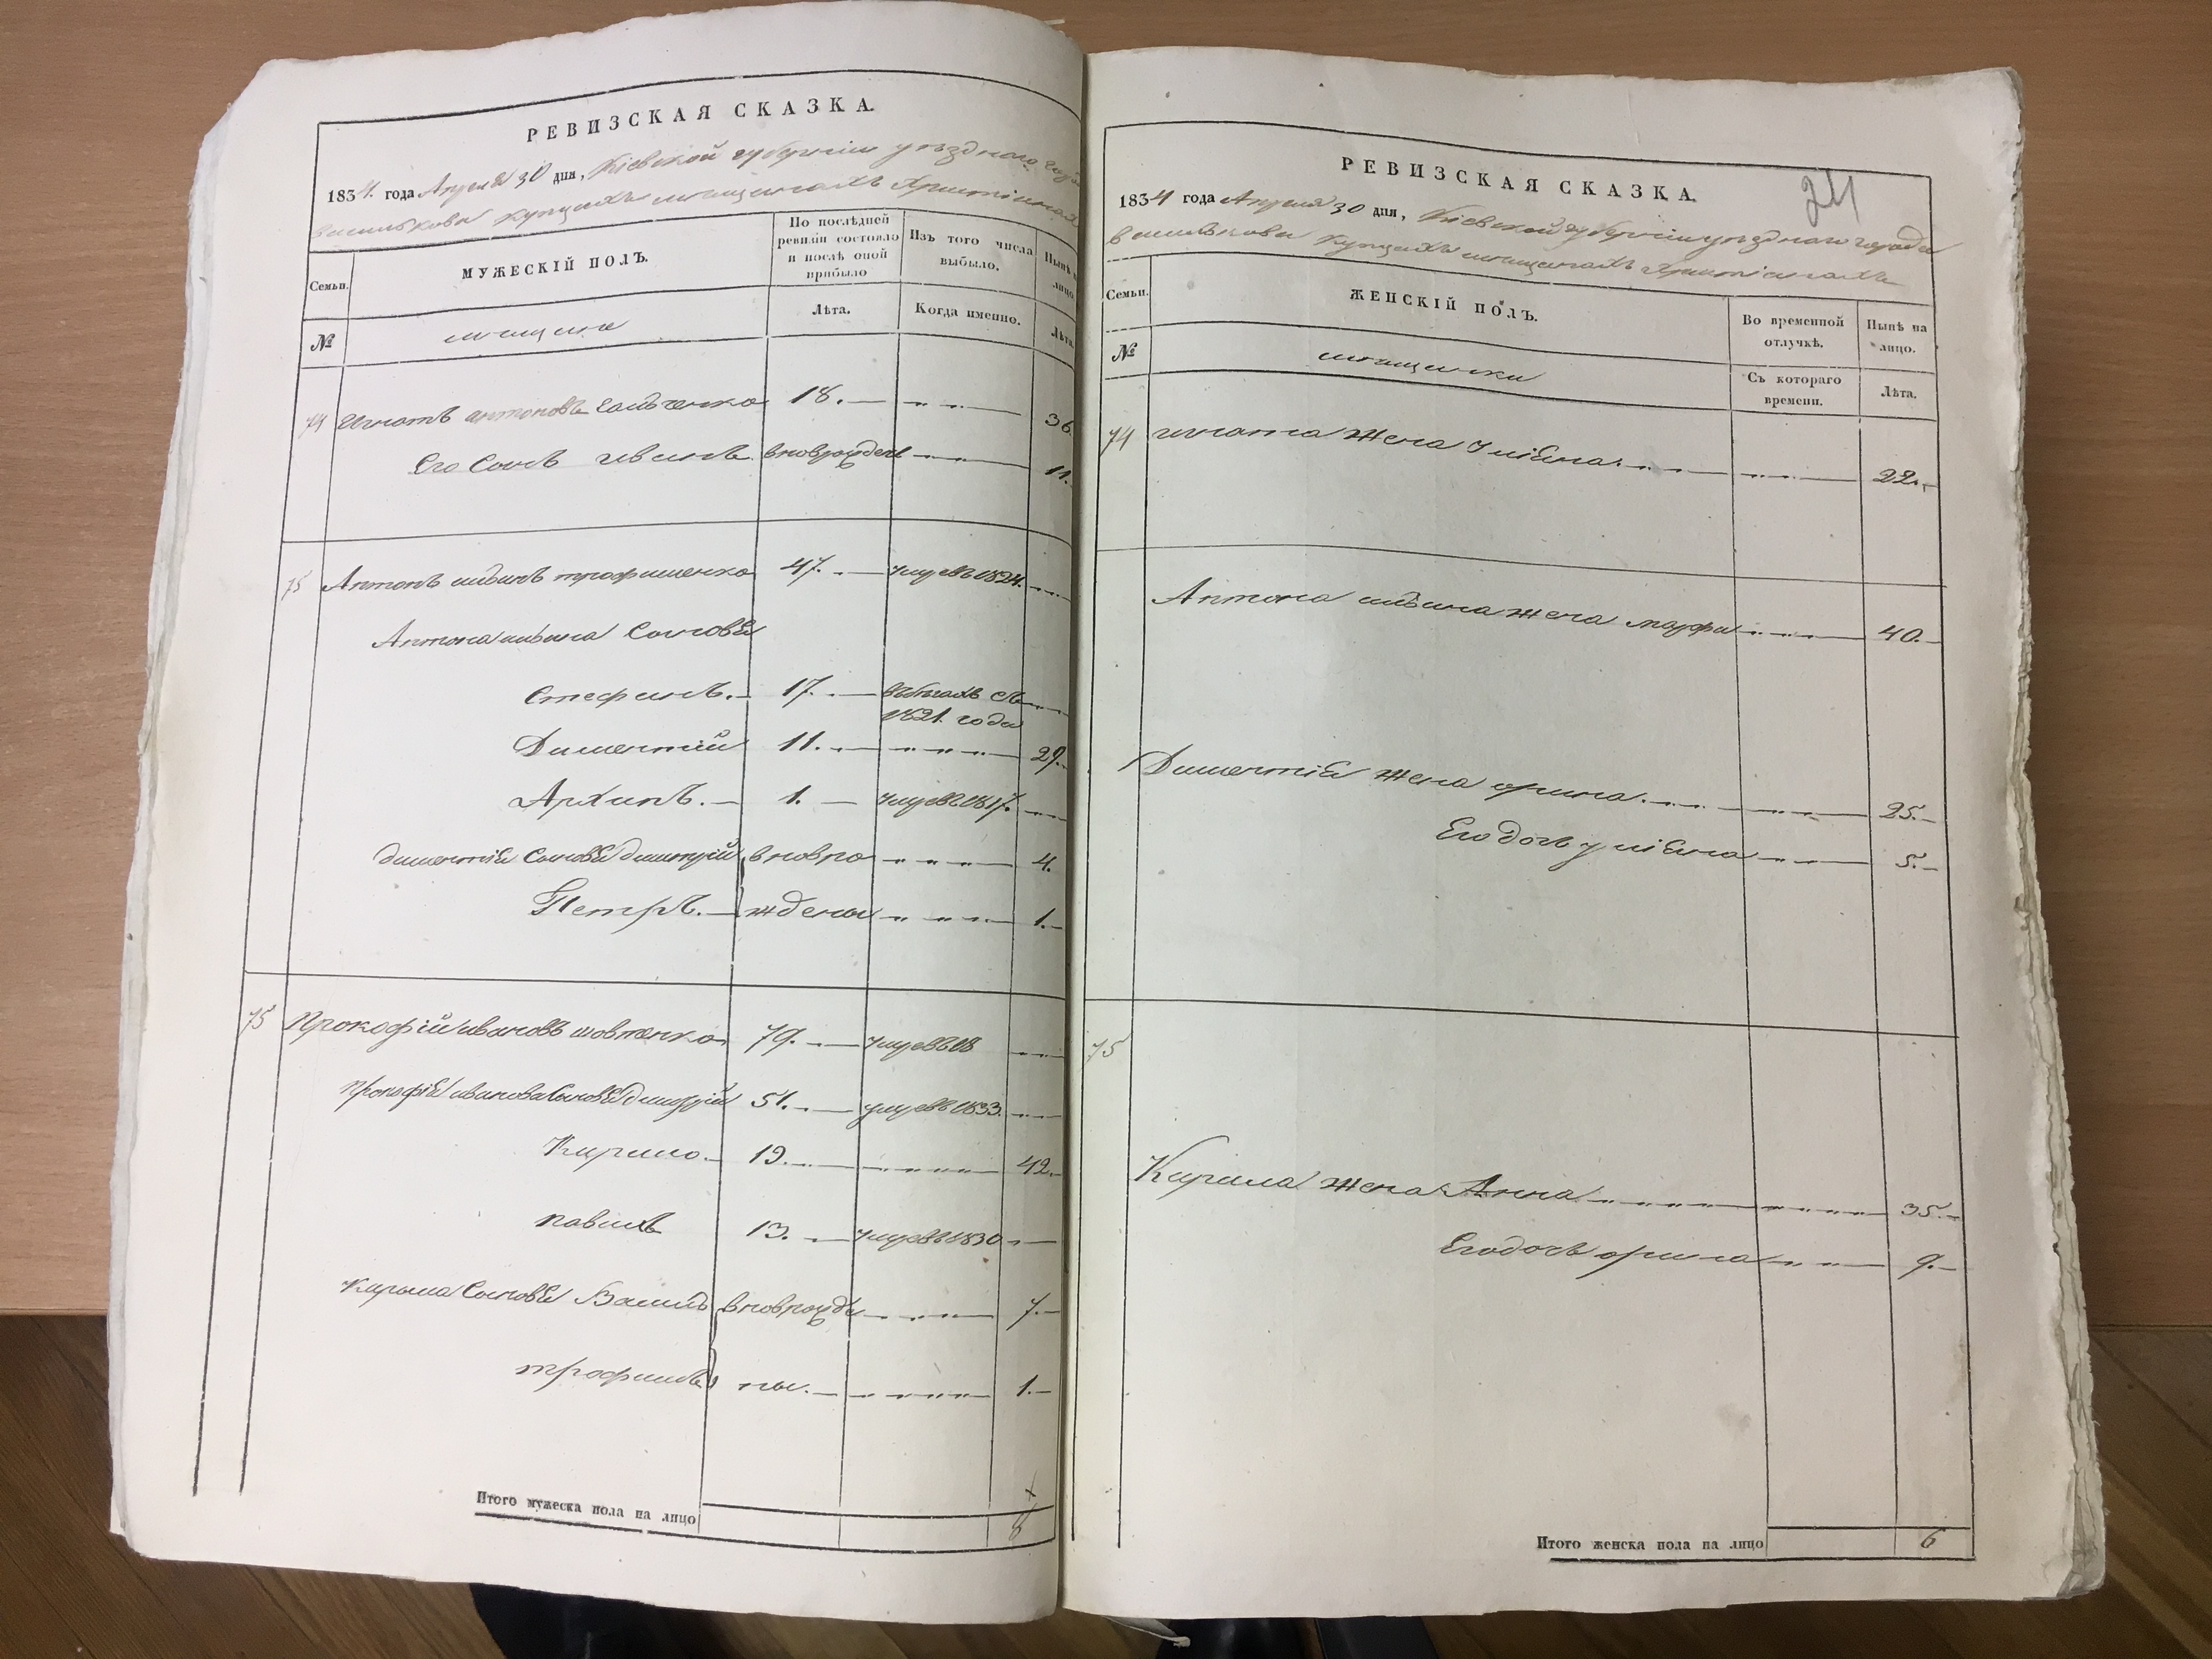 РЕВИЗСКАЯ СКАЗКА.
1834. года Апреля 30 дня, Кіевской губерніи уѣзднаго
василькова купцахъ мещанахъ христіанахъ
Семьи.
МУЖЕСКІЙ ПОЛЪ.
По послѣдней ревизіи состояло и послѣ оной прибыло
Изъ того числа выбыло.
Нынѣ на лицо
№
мещане
Лѣта.
Когда именно.
Лѣта.
74 Игнатъ антоновъ 18. 36.
Его Сынъ иванъ вновьрожден 11.
75 Антонъ трофименко 47. умре въ 1824.
Антона Сыновья
Стефанъ. 17. въ бегахъ съ
1821. года
Диментій 11. 29.
Архипъ. 1. умре въ 1817.
диментія Сыновья димитрій вновь ро 4.
Петръ. ждены 1.
75 Прокофій ивановъ шовтенко 79. умре въ 18
Прокофія иванова Сыновья димитрій 51. умре въ 1833.
Кирило 19. 42.
павелъ 13. умре въ 1830
Кирила Сыновья Василь вновь рожде 7.
трофимъ ны. 1.
Итого мужеска пола на лицо 8
РЕВИЗСКАЯ СКАЗКА.
24
1834 года Апреля 30 дня, Кіевской губерніи уѣзднаго города
василькова купцахъ мещанахъ христіанахъ
Семьи.
ЖЕНСКІЙ ПОЛЪ.
Во временной отлучкѣ.
Нынѣ на лицо.
№
мещанки
Съ котораго времени.
Лѣта.
74 игната жена Уліяна 22.
Антона жена марфа 40.
Диментія жена орина 25.
Его дочь уліяна 5.
75
Кирила жена Анна 35.
Его дочь орина 9.
Итого женска пола на лицо 6